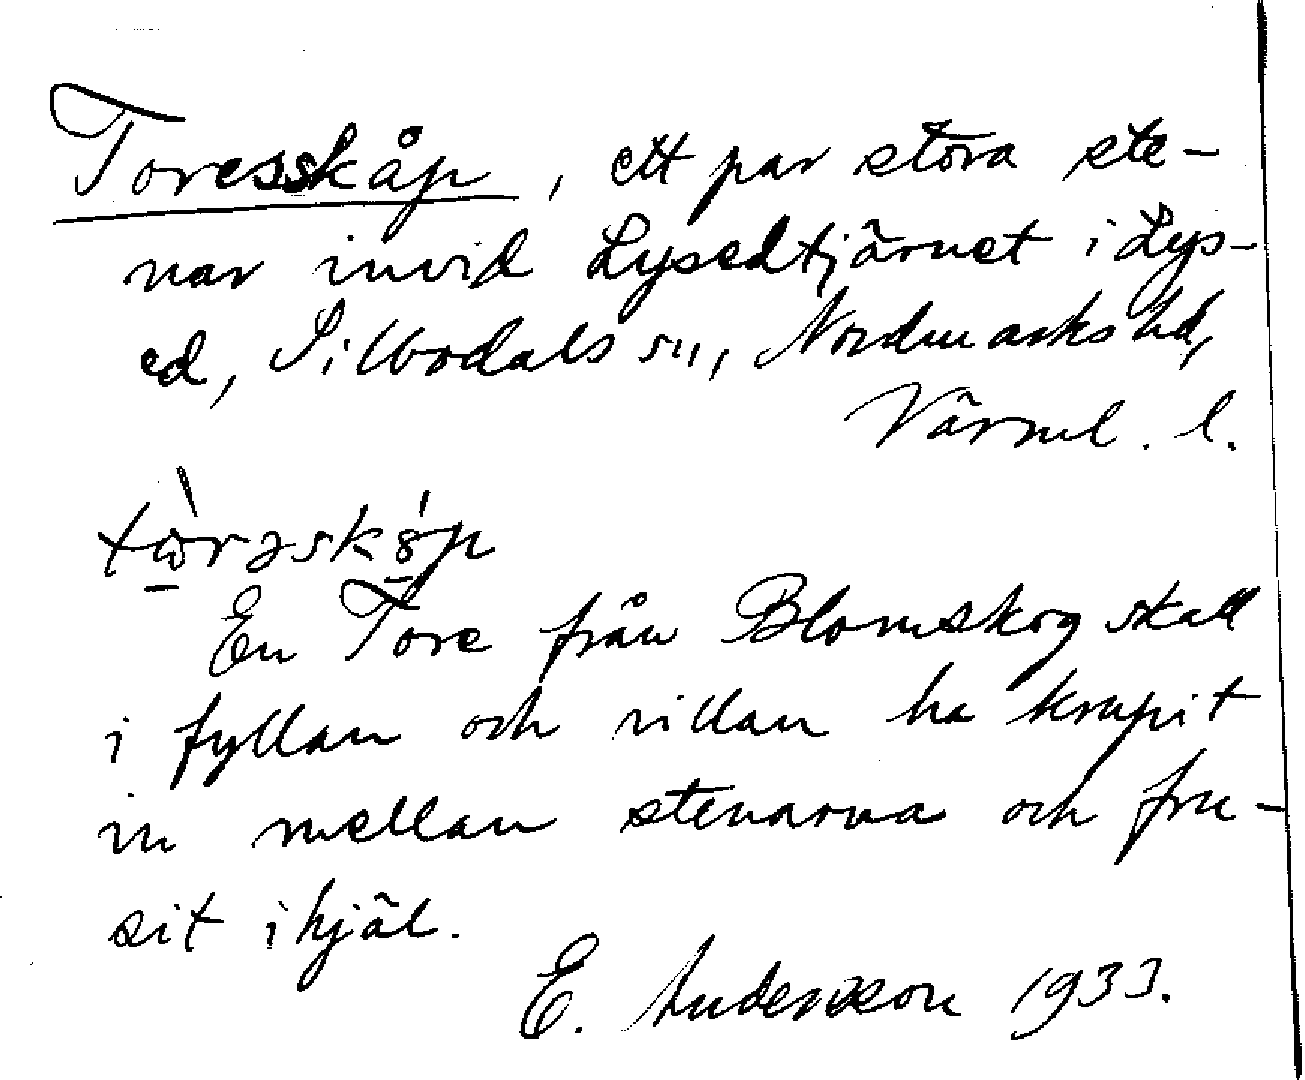 Toresskåp, ett par stora ste-
nar invid Lysedtjärnet i Lys-
ed, Silbodals sn, Nordmarks hd,
Värml. l.
tὼrəskȣ́p
En Tore från Blomskog skall
i fyllan och villan ha krupit
in mellan stenarna och fru-
sit ihjäl.
E. Andersson 1933.